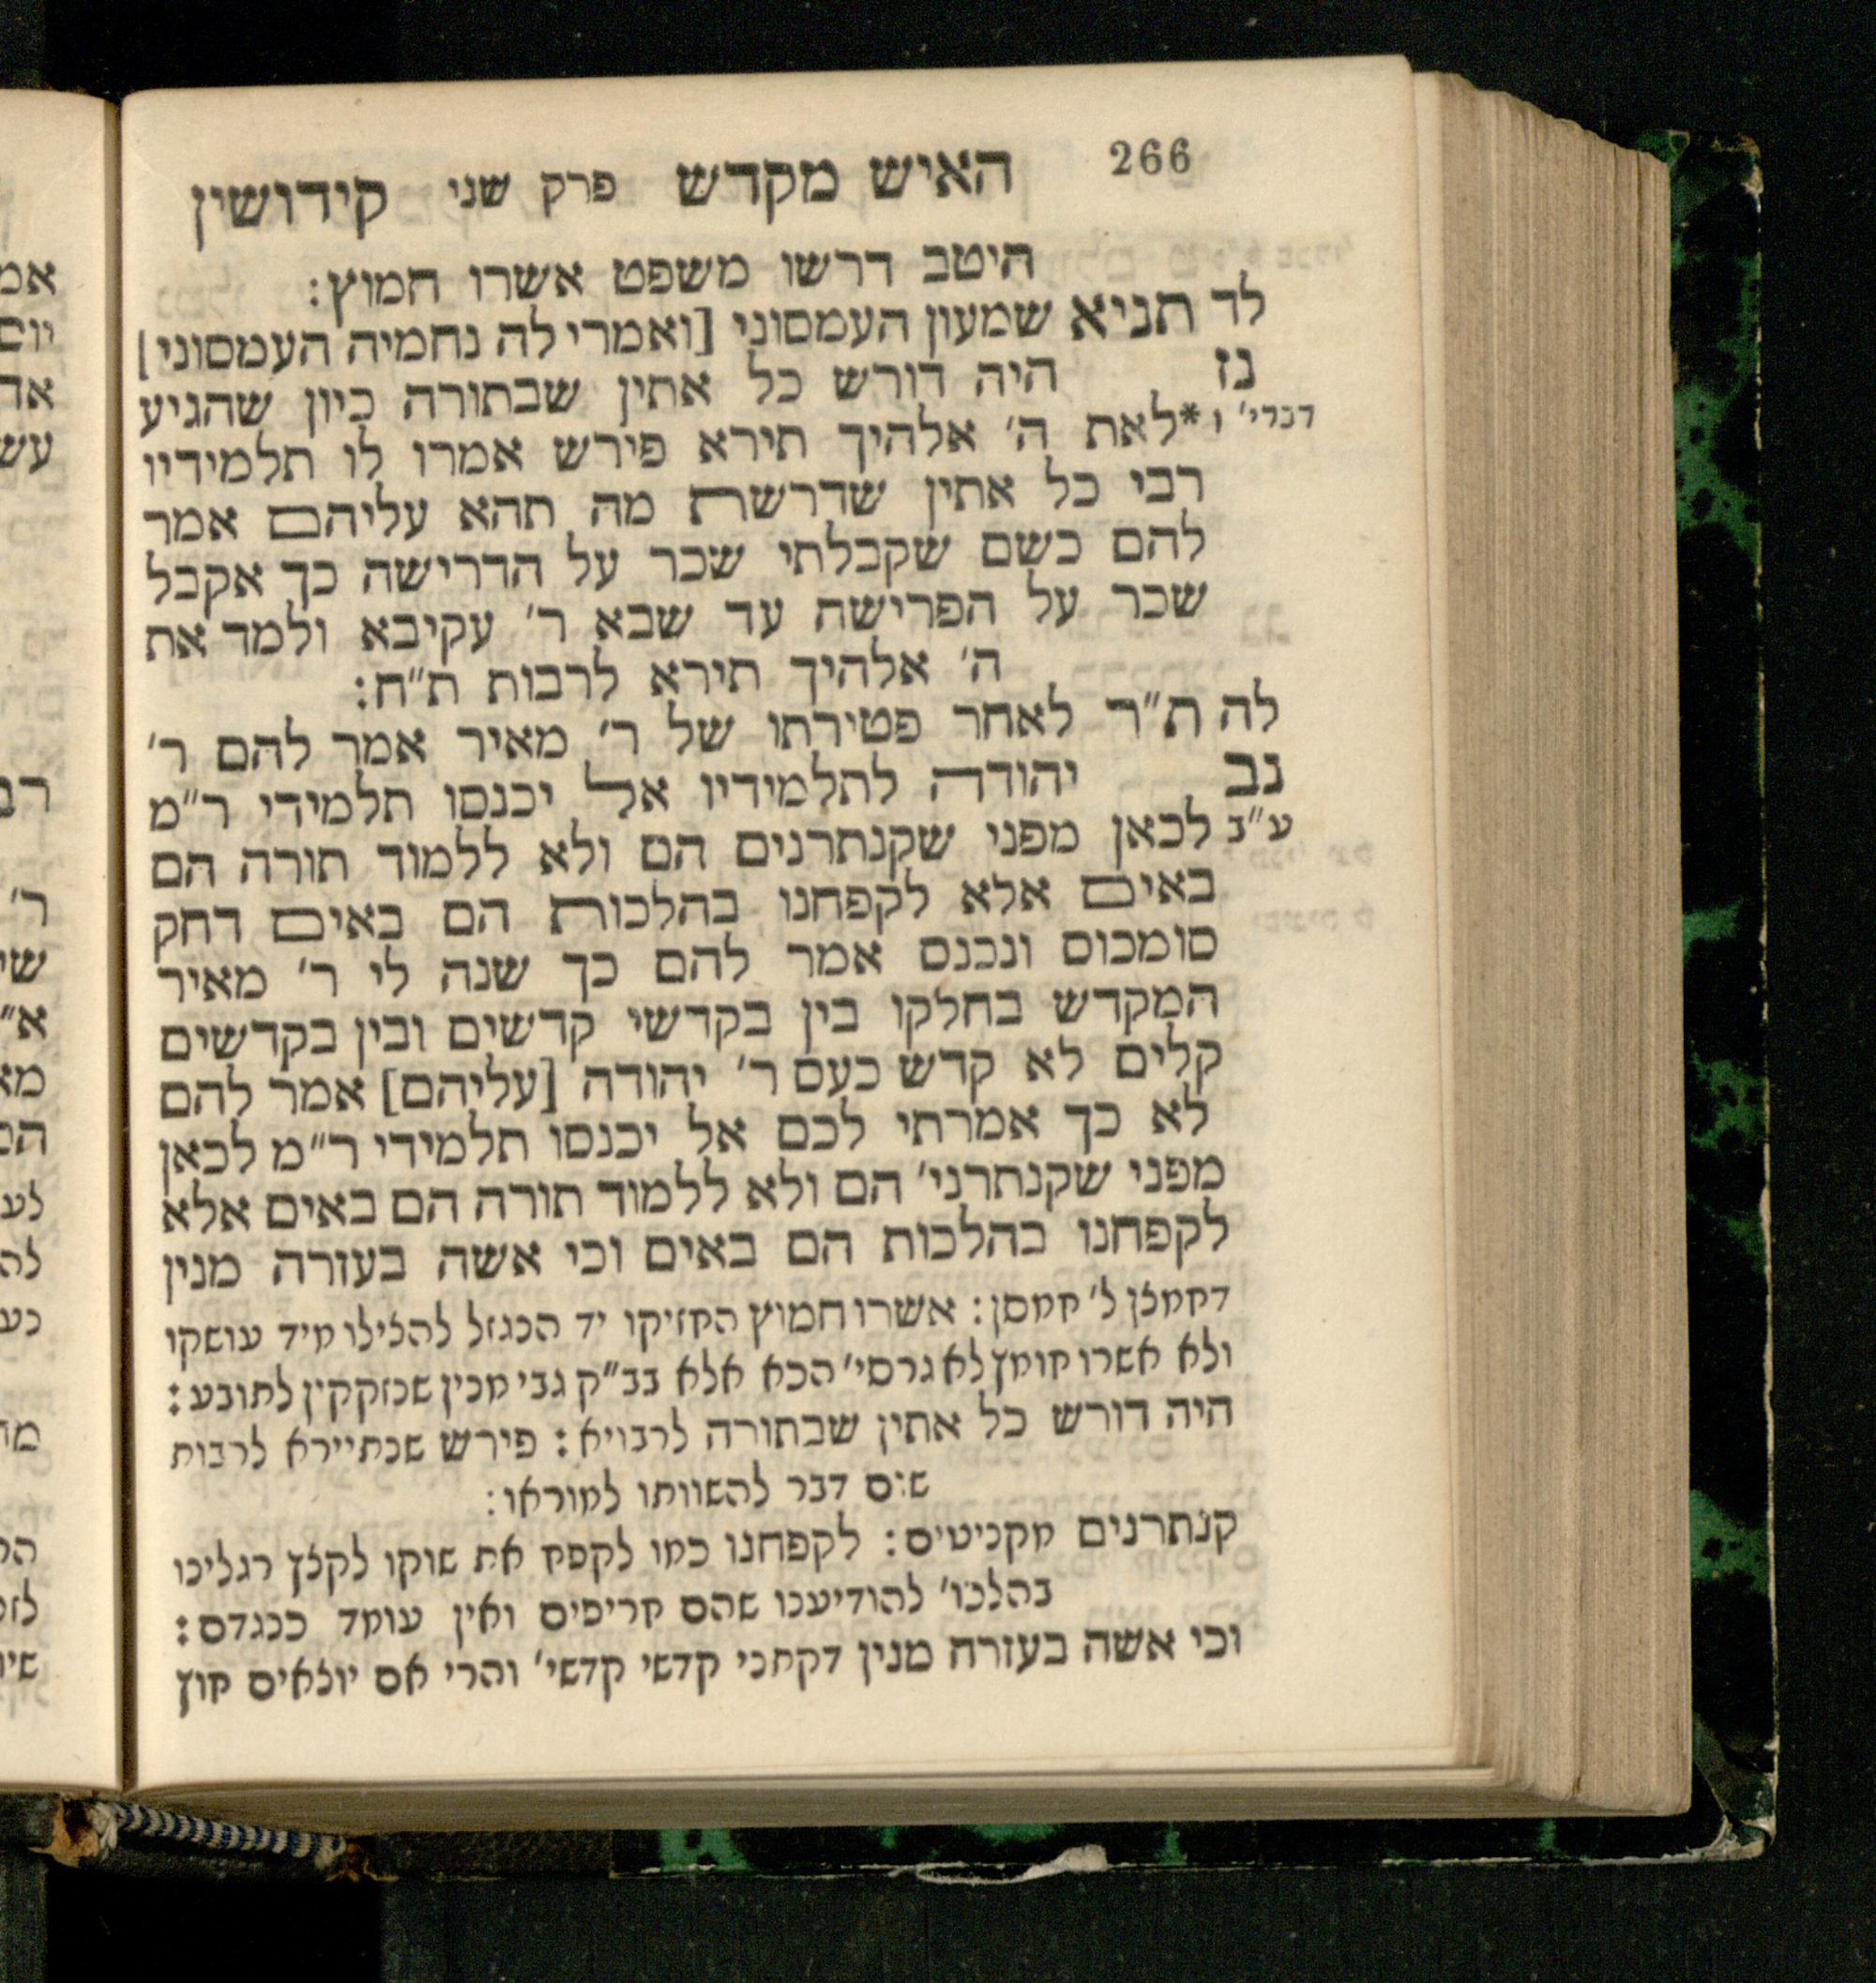 266 האיש מקדש פרק שני קידושין
היטב דרשו משפט אשרו חמוץ:
לד תניא שמעון העמסוני [ואמרי לה נחמיה העמסוני]
נז היה דורש כל אתין שבתורה כיון שהגיע
דברי' ו *לאת ה' אלהיך תירא פירש אמרו לו תלמידיו
רבי כל אתין שדרשת מה תהא עליהם אמר
להם כשם שקבלתי שכר על הדרישה כך אקבל
שכר על הפרישה עד שבא ר' עקיבא ולמד את
ה' אלהיך תירא לרבות ת"ח:
לה ת"ר לאחר פטירתו של ר' מאיר אמר להם ר'
נב יהודה לתלמידיו אל יכנסו תלמידי ר"מ
ע"ב לכאן מפני שקנתרנים הם ולא ללמוד תורה הם
באים אלא לקפחנו בהלכות הם באים דחק
סומכוס ונכנס אמר להם כך שנה לי ר' מאיר
המקדש בחלקו בין בקדשי קדשים ובין בקדשים
קלים לא קדש כעס ר' יהודה [עליהם] אמר להם
לא כך אמרתי לכם אל יכנסו תלמידי ר"מ לכאן
מפני שקנתרני' הם ולא ללמוד תורה הם באים אלא
לקפחנו בהלכות הם באים וכי אשה בעזרה מנין
דחמצן ל' חמסן: אשרו חמוץ החזיקו יד הנגזל להצילו מיד עושקו
ולא אשרו חומץ לא גרסי' הכא אלא בב"ק גבי מנין שנזקקין לתובע:
היה דורש כל אתין שבתורה לרבויא: פירש שנתיירא לרבות
שום דבר להשוותו למוראו:
קנתרנים מקניטים: לקפחנו כמו לקפח את שוקו לקצץ רגלינו
בהלכו' להודיענו שהם חריפים ואין עומד כנגדם:
וכי אשה בעזרה מנין דקתני קדשי קדשי' והרי אם יוצאים חוץ